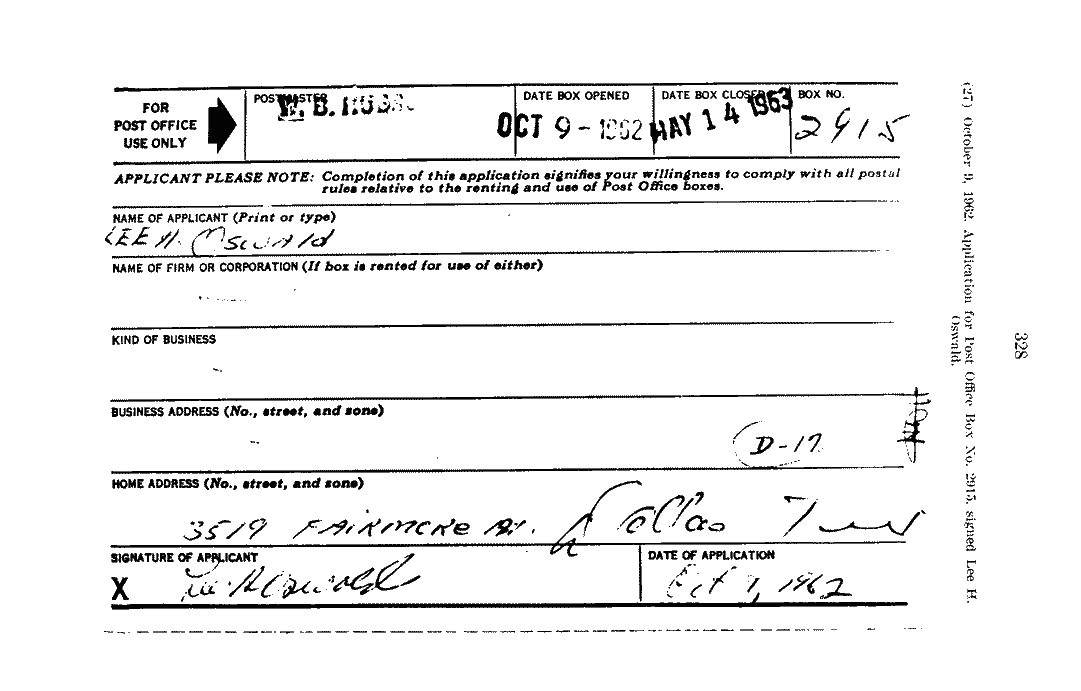 FOR
POST OFFICE
USE ONLY
POSTMASTER
W. B. HUDSON
DATE BOX OPENED
OCT 9 - 1962
DATE BOX CLOSED
MAY 14 1963
BOX NO.
2915
APPLICANT PLEASE NOTE: Completion of this application signifies your willingness to comply with all postal
rules relative to the renting and use of Post Office boxes.
NAME OF APPLICANT (Print or type)
LEE H. OSWALD
NAME OF FIRM OR CORPORATION (If box is rented for use of either)
KIND OF BUSINESS
BUSINESS ADDRESS (No., street, and zone)
D-17
HOME ADDRESS (No., street, and zone)
3519 FAIRMORE AV. Dallas Texas
SIGNATURE OF APPLICANT
X Lee H Oswald
DATE OF APPLICATION
Oct 9, 1962
(27) October 9, 1962. Application for Post Office Box No. 2915, signed Lee H.
Oswald.
328